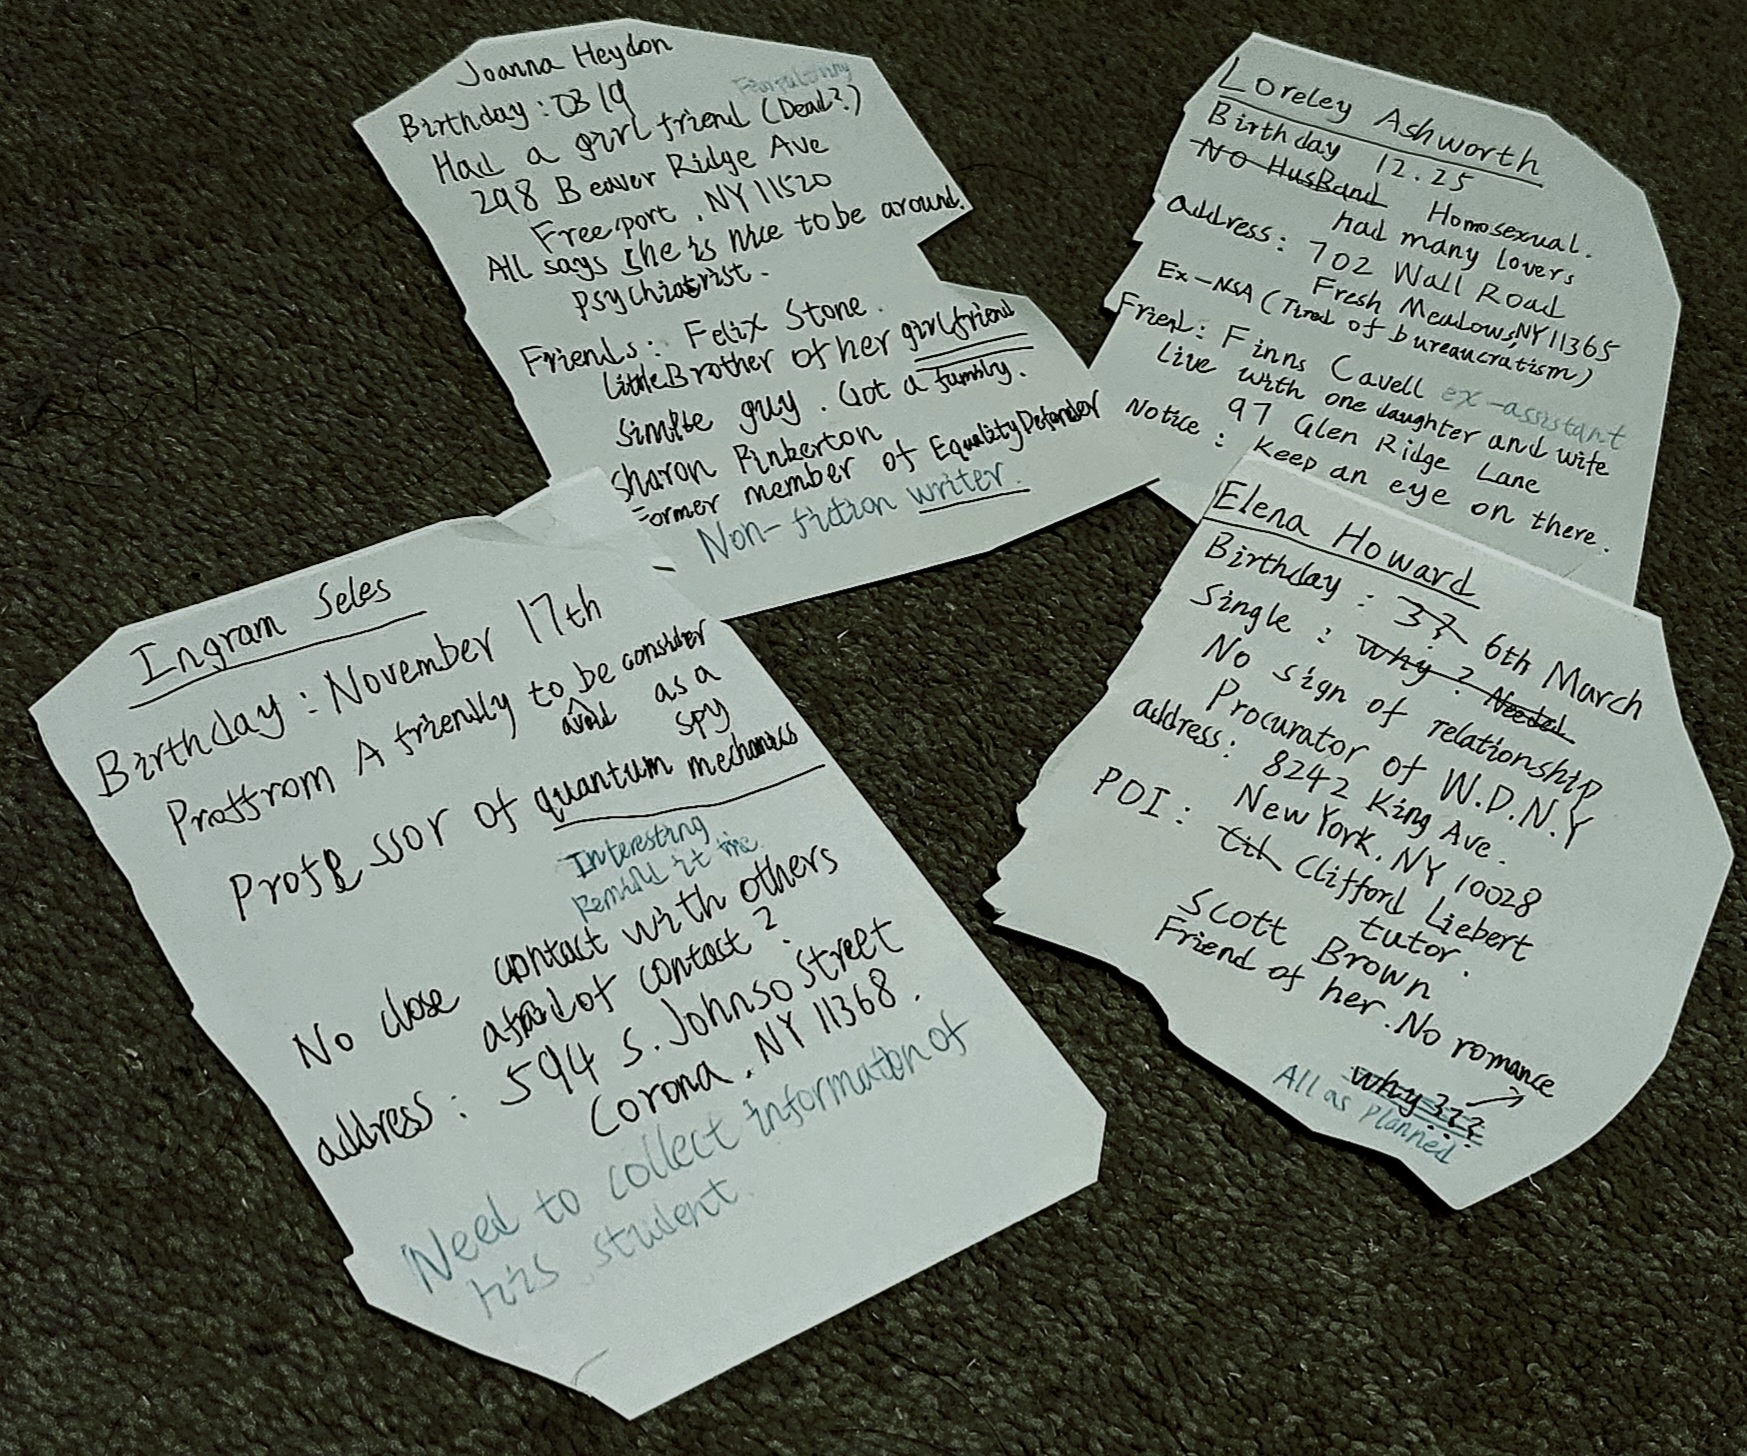 Joanna Heydon
Birthday : 0319
Had a girlfriend (Dead?)
298 Beaver Ridge Ave
Freeport , NY 11520
All says she is nice to be around.
Psychiatrist .
Friends : Felix Stone .
little Brother of her girlfriend
simple guy . Got a family.
Sharon Pinkerton
Former member of Equality Defender
Non-fiction writer.
Loreley Ashworth
Birthday 12.25
NO HusBand Homosexual.
had many lovers
address : 702 Wall Road
Fresh Meadows, NY 11365
Ex-NSA (Tired of bureaucratism)
Friend : Finns Cavell ex-assistant
Live with one daughter and wife
97 Glen Ridge Lane
Notice : Keep an eye on there.
Ingram Seles
Birthday : November 17th
A friendly to be consider
avoid as a
spy
Professor of quantum mechanics
Interesting
Remind it me
No close contact with others
afraid of contact ?
address : 594 S. Johnso Street
Corona , NY 11368 .
Need to collect information of
his student.
Elena Howard
Birthday : 3? 6th March
Single : Why ? Needed
No sign of relationship
Procurator of W.D.N.Y
address : 8242 King Ave.
New York, NY 10028
POI : Clifford Liebert
tutor .
Scott Brown
Friend of her . No romance
why???
All as Planned